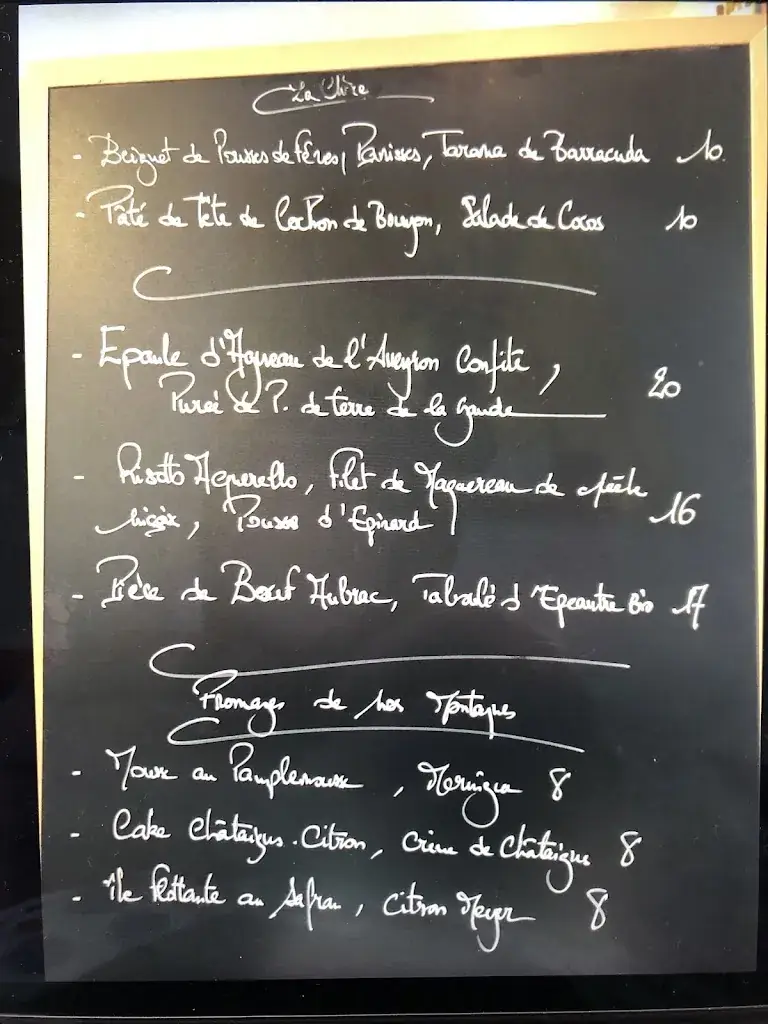 - Beignet de Pousses de fêves, Panisses, Tarama de Barracuda 10
- Pâté de Tête de Cochon de Bouyon, Salade de Cocos 10
- Epaule d'Agneau de l'Aveyron Confite,
Purée de P. de terre de la Gaude 20
- Risotto Aquerello, Filet de Maquereau de pêche
niçoix, Pousse d'Epinard 16
- Pièce de Boeuf Aubrac, Taboulé d'Epeautre Bio 17
Fromages de nos Montagnes
- Mousse au Pamplemousse, Meringue 8
- Cake Châtaignes-Citron, Crème de Châtaigne 8
- île flottante au Safran, Citron Meyer 8